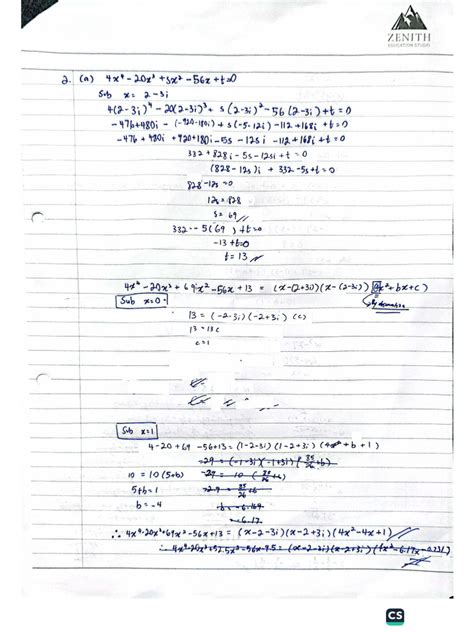 ZENITH
EDUCATION STUDIO
2. (a) 4x⁴ - 20x³ + sx² - 56x + t = 0
Sub x = 2 - 3i
4(2-3i)⁴ - 20(2-3i)³ + s(2-3i)² - 56(2-3i) + t = 0
-476+480i - (-920-180i) + s(-5-12i) - 112 + 168i + t = 0
-476 + 480i + 920 + 180i - 5s - 12si - 112 + 168i + t = 0
332 + 828i - 5s - 12si + t = 0
(828 - 12s)i + 332 - 5s + t = 0
828 - 12s = 0
12s = 828
s = 69
332 - 5(69) + t = 0
-13 + t = 0
t = 13
4x⁴ - 20x³ + 69x² - 56x + 13 = (x-(2+3i))(x-(2-3i))(4x² + bx + c)
Sub x=0
By
13 = (-2-3i)(-2+3i)(c)
13 = 13c
c = 1
Sub x=1
4 - 20 + 69 - 56 + 13 = (1-2-3i)(1-2+3i)(4 + b + 1)
-29 = (-1-3i)(-1+3i)(35/26 + b)
10 = 10(5+b)
-29 = 10 (35/26 + b)
5+b = 1
-2.9 = 35/26 + b
b = -4
= -6.17
∴ 4x⁴ - 20x³ + 69x² - 56x + 13 = (x-2-3i)(x-2+3i)(4x² - 4x + 1)
∴ 4x⁴ - 20x³ + 52.5x² - 56x - 9.5 = (x-2-3i)(x-2+3i)
CS